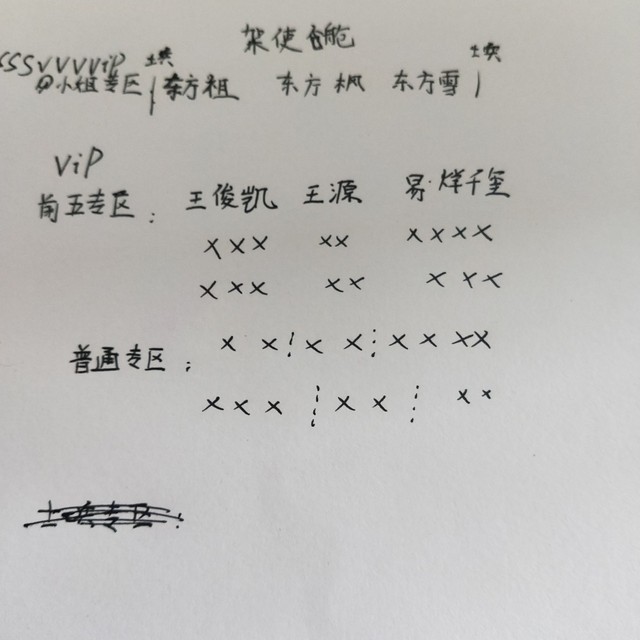 架使舱
SSSVVVViP
小姐专区 | 东方祖 东方枫 东方雪 |
ViP
前五专区: 王俊凯 王源 易烊千玺
××× ×× ××××
××× ×× ×××
普通专区: × × × × × × ××
××× ×× ××